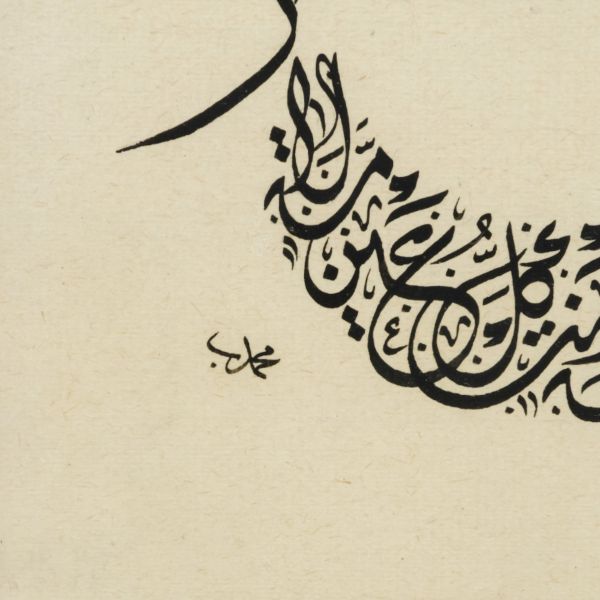 ومن كل عين لامة
محمد